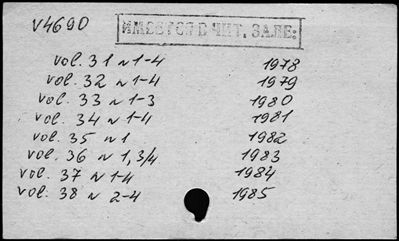 V4690
ИМЕЕТСЯ В ЧИТ. ЗАЛЕ:
vol. 31 N 1-4 1978
vol. 32 N 1-4 1979
vol. 33 N 1-3 1980
vol. 34 N 1-4 1981
vol. 35 N 1 1982
vol. 36 N 1, 3/4 1983
vol. 37 N 1-4 1984
vol. 38 N 2-4 1985